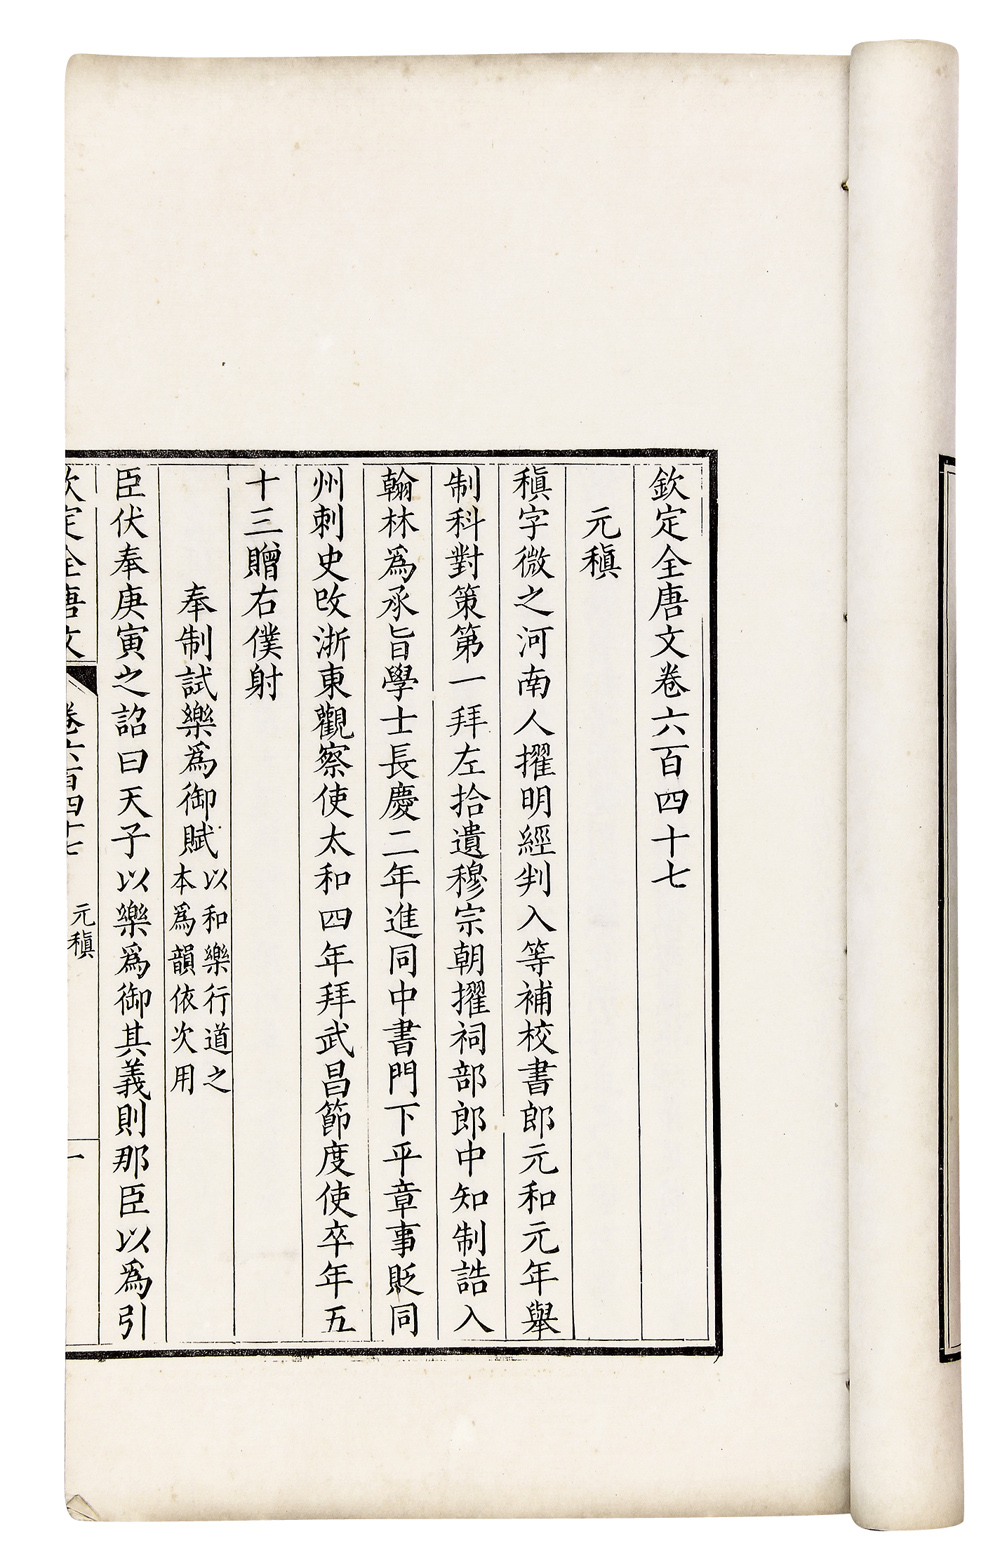 欽定全唐文卷六百四十七
元稹
稹字微之河南人擢明經判入等補校書郎元和元年舉
制科對策第一拜左拾遺穆宗朝擢祠部郎中知制誥入
翰林爲承旨學士長慶二年進同中書門下平章事貶同
州刺史改浙東觀察使太和四年拜武昌節度使卒年五
十三贈右僕射
奉制試樂爲御賦
以和樂行道之
本爲韻依次用
臣伏奉庚寅之詔曰天子以樂爲御其義則那臣以爲引
欽定全唐文
卷六百四十七
元稹
一